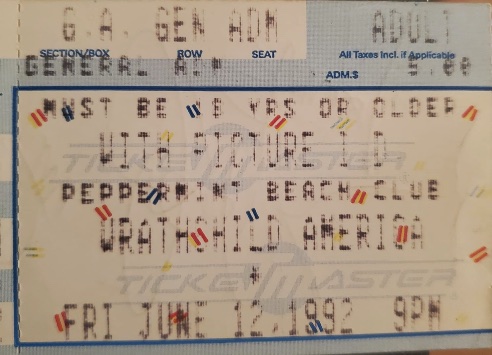 G.A. GEN ADM ADULT
SECTION/BOX ROW SEAT All Taxes Incl. if Applicable
GENERAL ADM ADM.$ 5.00
MUST BE 18 YRS OR OLDER
WITH PICTURE I D
TICKETMASTER
PEPPERMINT BEACH CLUB
WRATHCHILD AMERICA
TICKETMASTER
FRI JUNE 12,1992 9PM